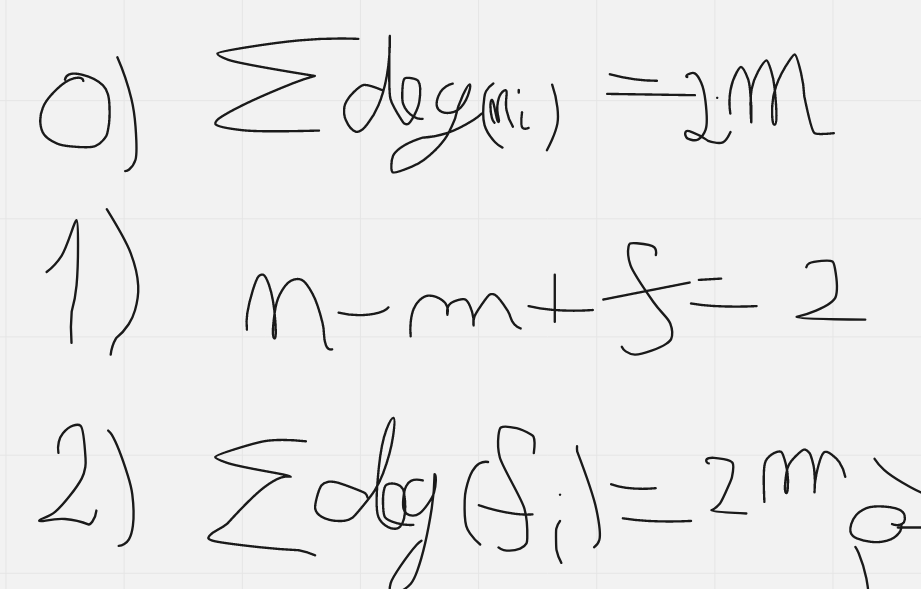 0) Σ deg(n_i) = 2m
1) n - m + f = 2
2) Σ deg(f_i) = 2m